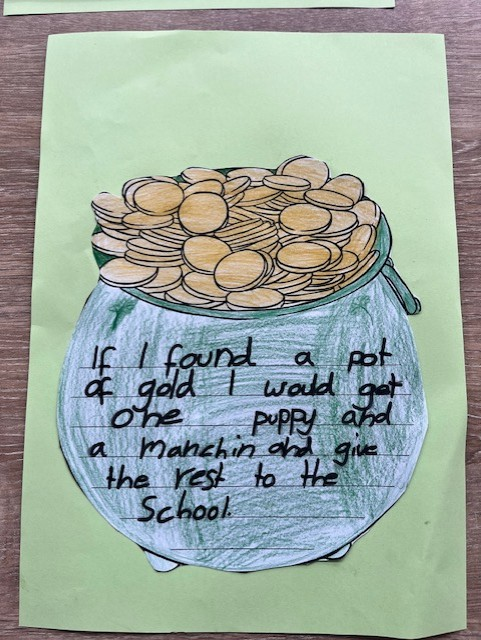 If I found a pot
of gold I would get
one puppy and
a manchin and give
the rest to the
School.